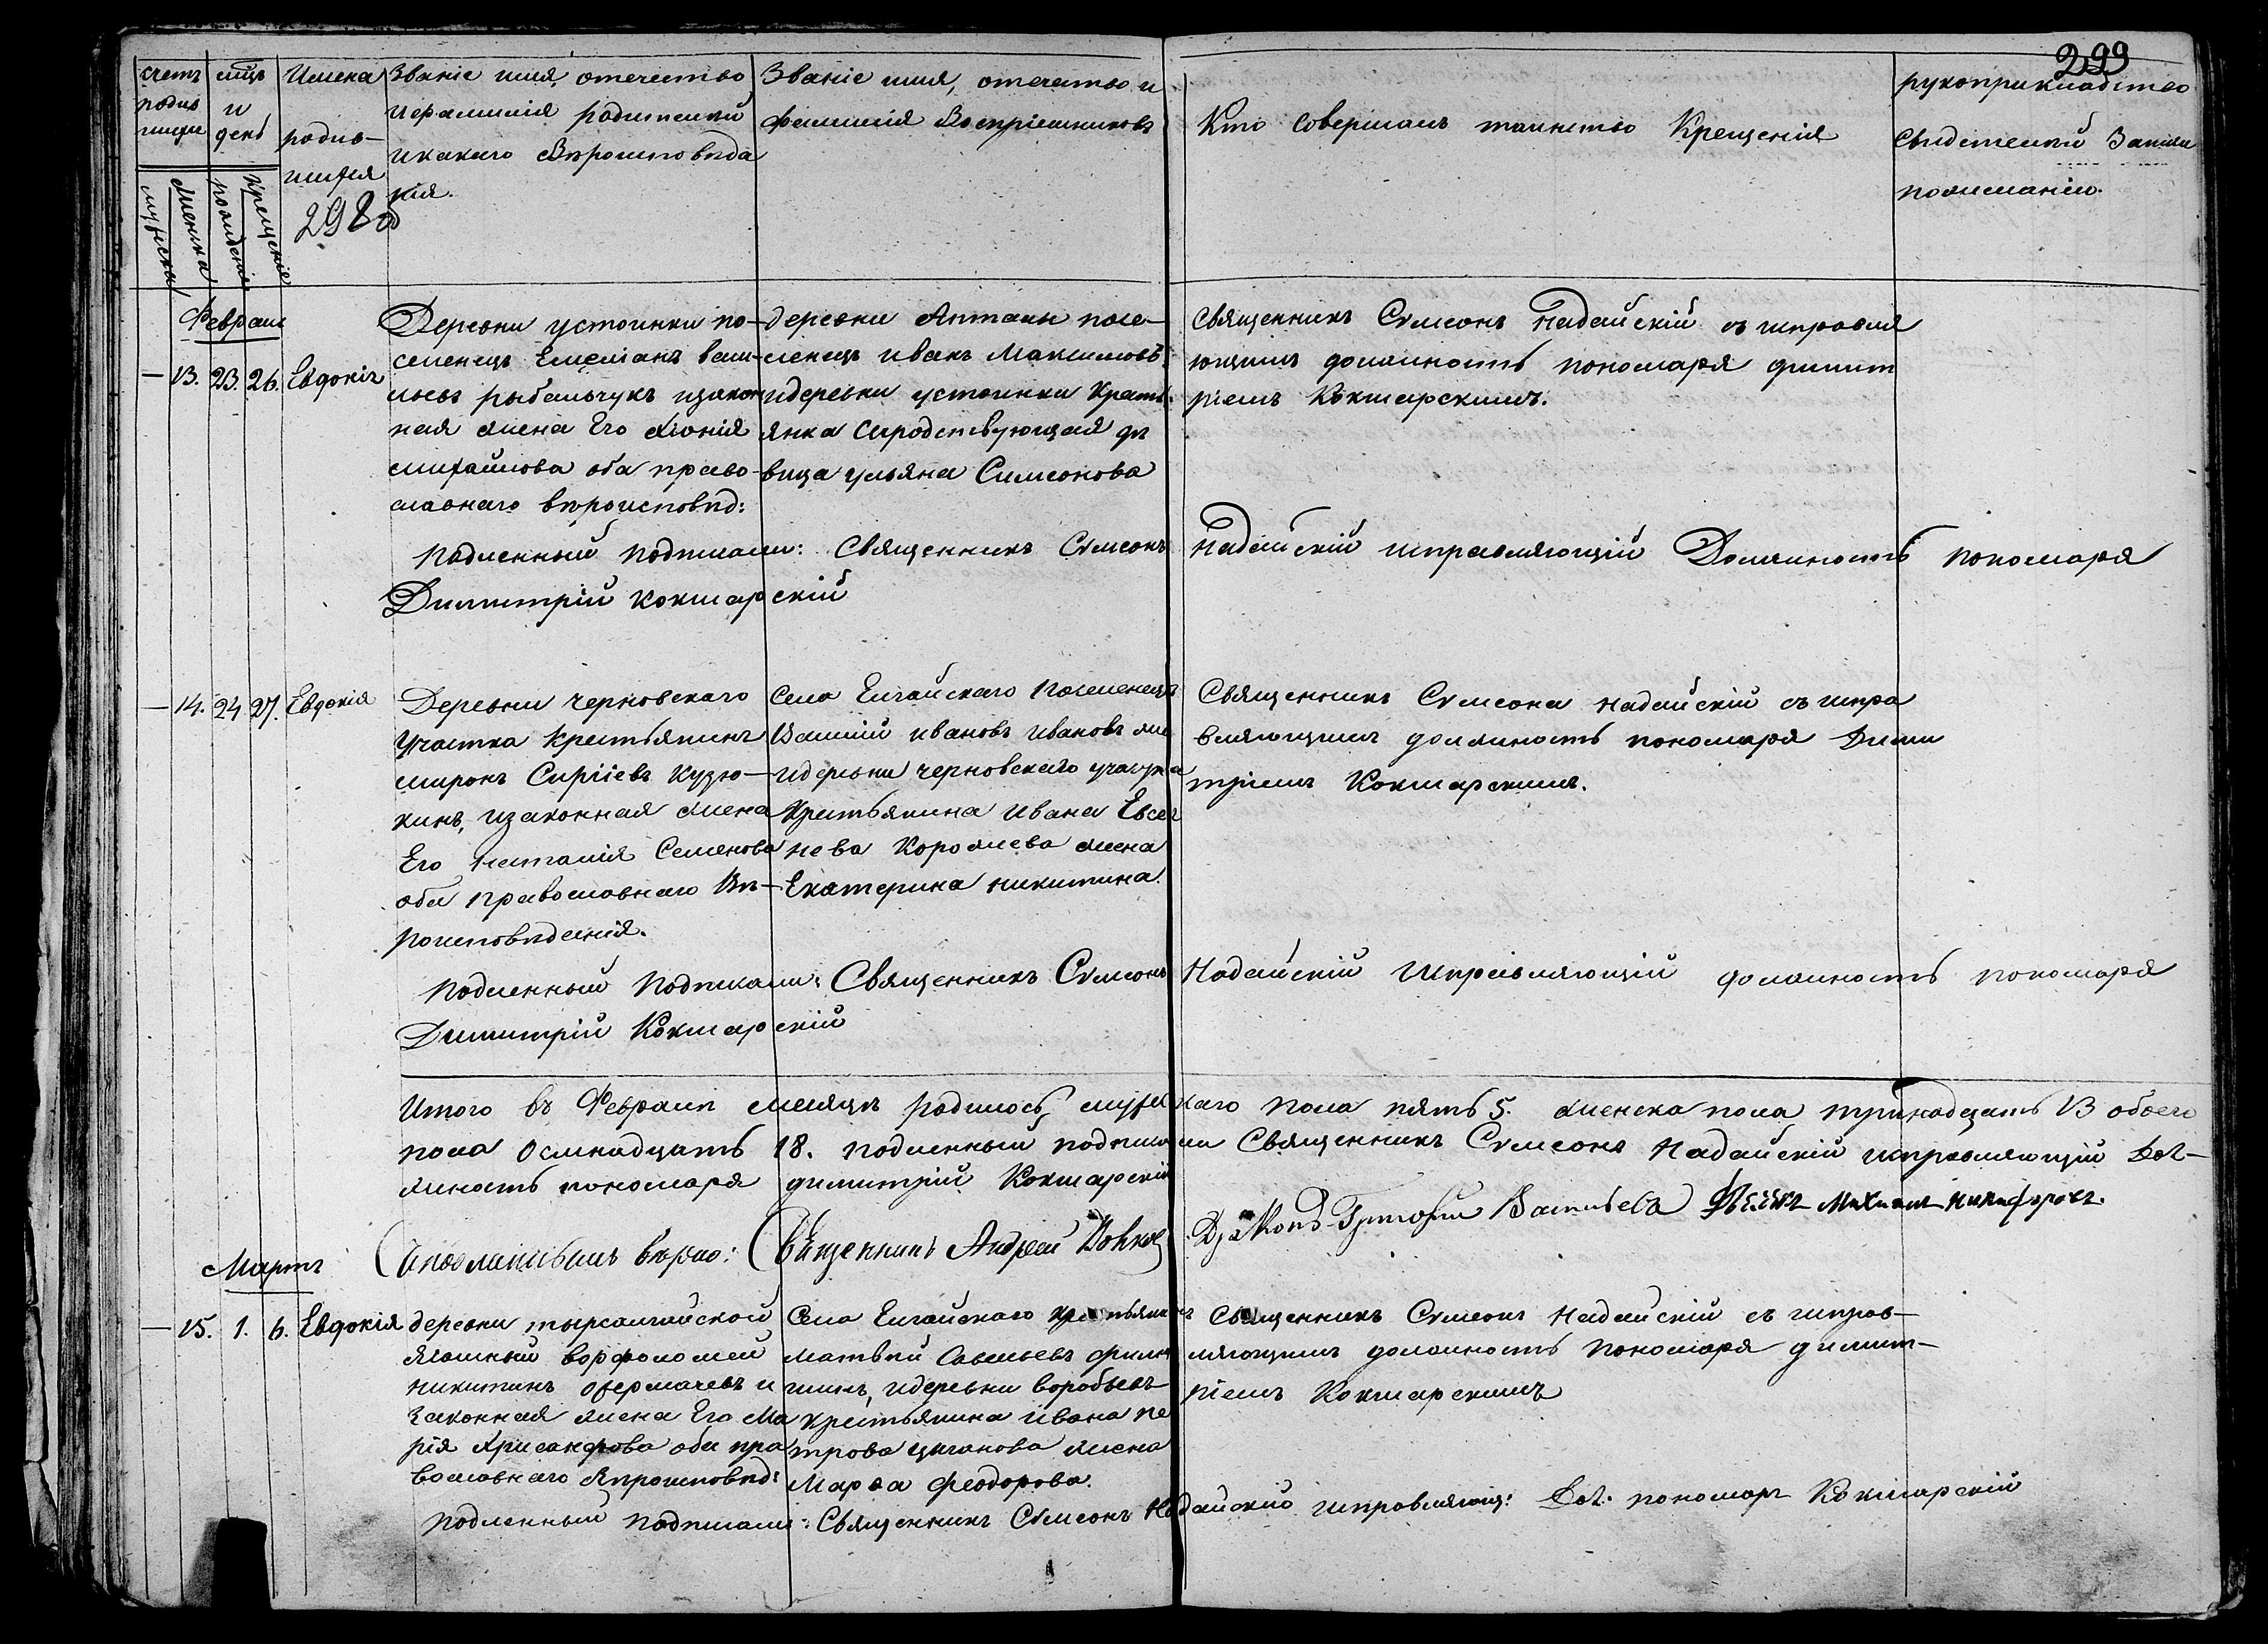 299
счетъ родившихся
мужска
женска
мцъ и день
рожденія
крещенія
Имена родившихся
298 об
Званіе имя, отечество
и фамилія родителей
и какаго вѣроисповѣда
нія.
Званіе имя, отечество и
фамилія Воспріемниковъ
Кто совершалъ таинство Крещенія
рукоприкладство
свидетелей записи
по желанію.
Февраль
— 13. 23. 26. Евдокія
Деревни устоинки по-
селенецъ Емеліанъ васи-
льевъ рыбальчукъ и закон
ная жена Его Хіонія
михайлова оба право-
славнаго вѣроисповѣд:
деревни Апталы посе-
ленецъ иванъ Максимовъ
и деревни устоинки Крест
янка сиродствующая дѣ
вица ульяна Симеонова
Священникъ Сѵмеонъ Надейскій съ исправля
ющимъ должность пономаря димит
ріемъ Кокшарскимъ.
Подленный подписали: Священникъ Сѵмеонъ Надейскій исправляющій Должность пономаря
Димитрій Кокшарскій
— 14. 24 27. Евдокія
Деревни черновскаго
участка крестьянинъ
миронъ Сиргіевъ Кузю-
кинъ, и законная жена
Его наталія Семенова
оба православнаго вѣ-
роисповѣденія.
Села Елгайскаго Поселенецъ
Василій ивановъ ивановъ же
и деревни черновскаго участка
Крестьянина ивана Евсег
нева Королева жена
Екатерина никитина.
Священникъ Сѵмеонъ Надейскій съ испра
вляющимъ должность пономаря Дими
тріемъ Кокшарскимъ.
Подленный Подписали: Священникъ Сѵмеонъ Надейскій Исправляющій должность пономаря
Димитрій Кокшарскій
Итого въ Февралѣ месяцѣ родилось мужескаго пола пять 5. женска пола тринадцать 13 обоего
пола осмнадцать 18. подленный подписали Священникъ Сѵмеонъ Надейскій исправляющій Дол-
жность пономаря димитрій Кокшарскій
Съ подлинымъ вѣрно: Священникъ Андрей Діяконъ Григорій Васильевъ Михаилъ Никифоровъ.
Мартъ
— 15. 1. 6. Евдокія
деревни тырсалгайской
ясашный ворфоломей
никитинъ и
законная жена Его Ма
рія Хрисанфова оба пра
вославнаго вѣроисповѣд:
Села Елгайскаго крестьянинъ
матвѣй Савельевъ фили
шинъ, и деревни воробьевъ
крестьянина ивана пе
трова циганова жена
Марѳа феодорова.
Священникъ Сѵмеонъ Надейскій съ исправ-
ляющимъ должность Пономаря димит-
ріемъ Кокшарскимъ
Подленный Подписали: Священникъ Сѵмеонъ Надейскій исправляющ: Дол: пономаря Кокшарскій